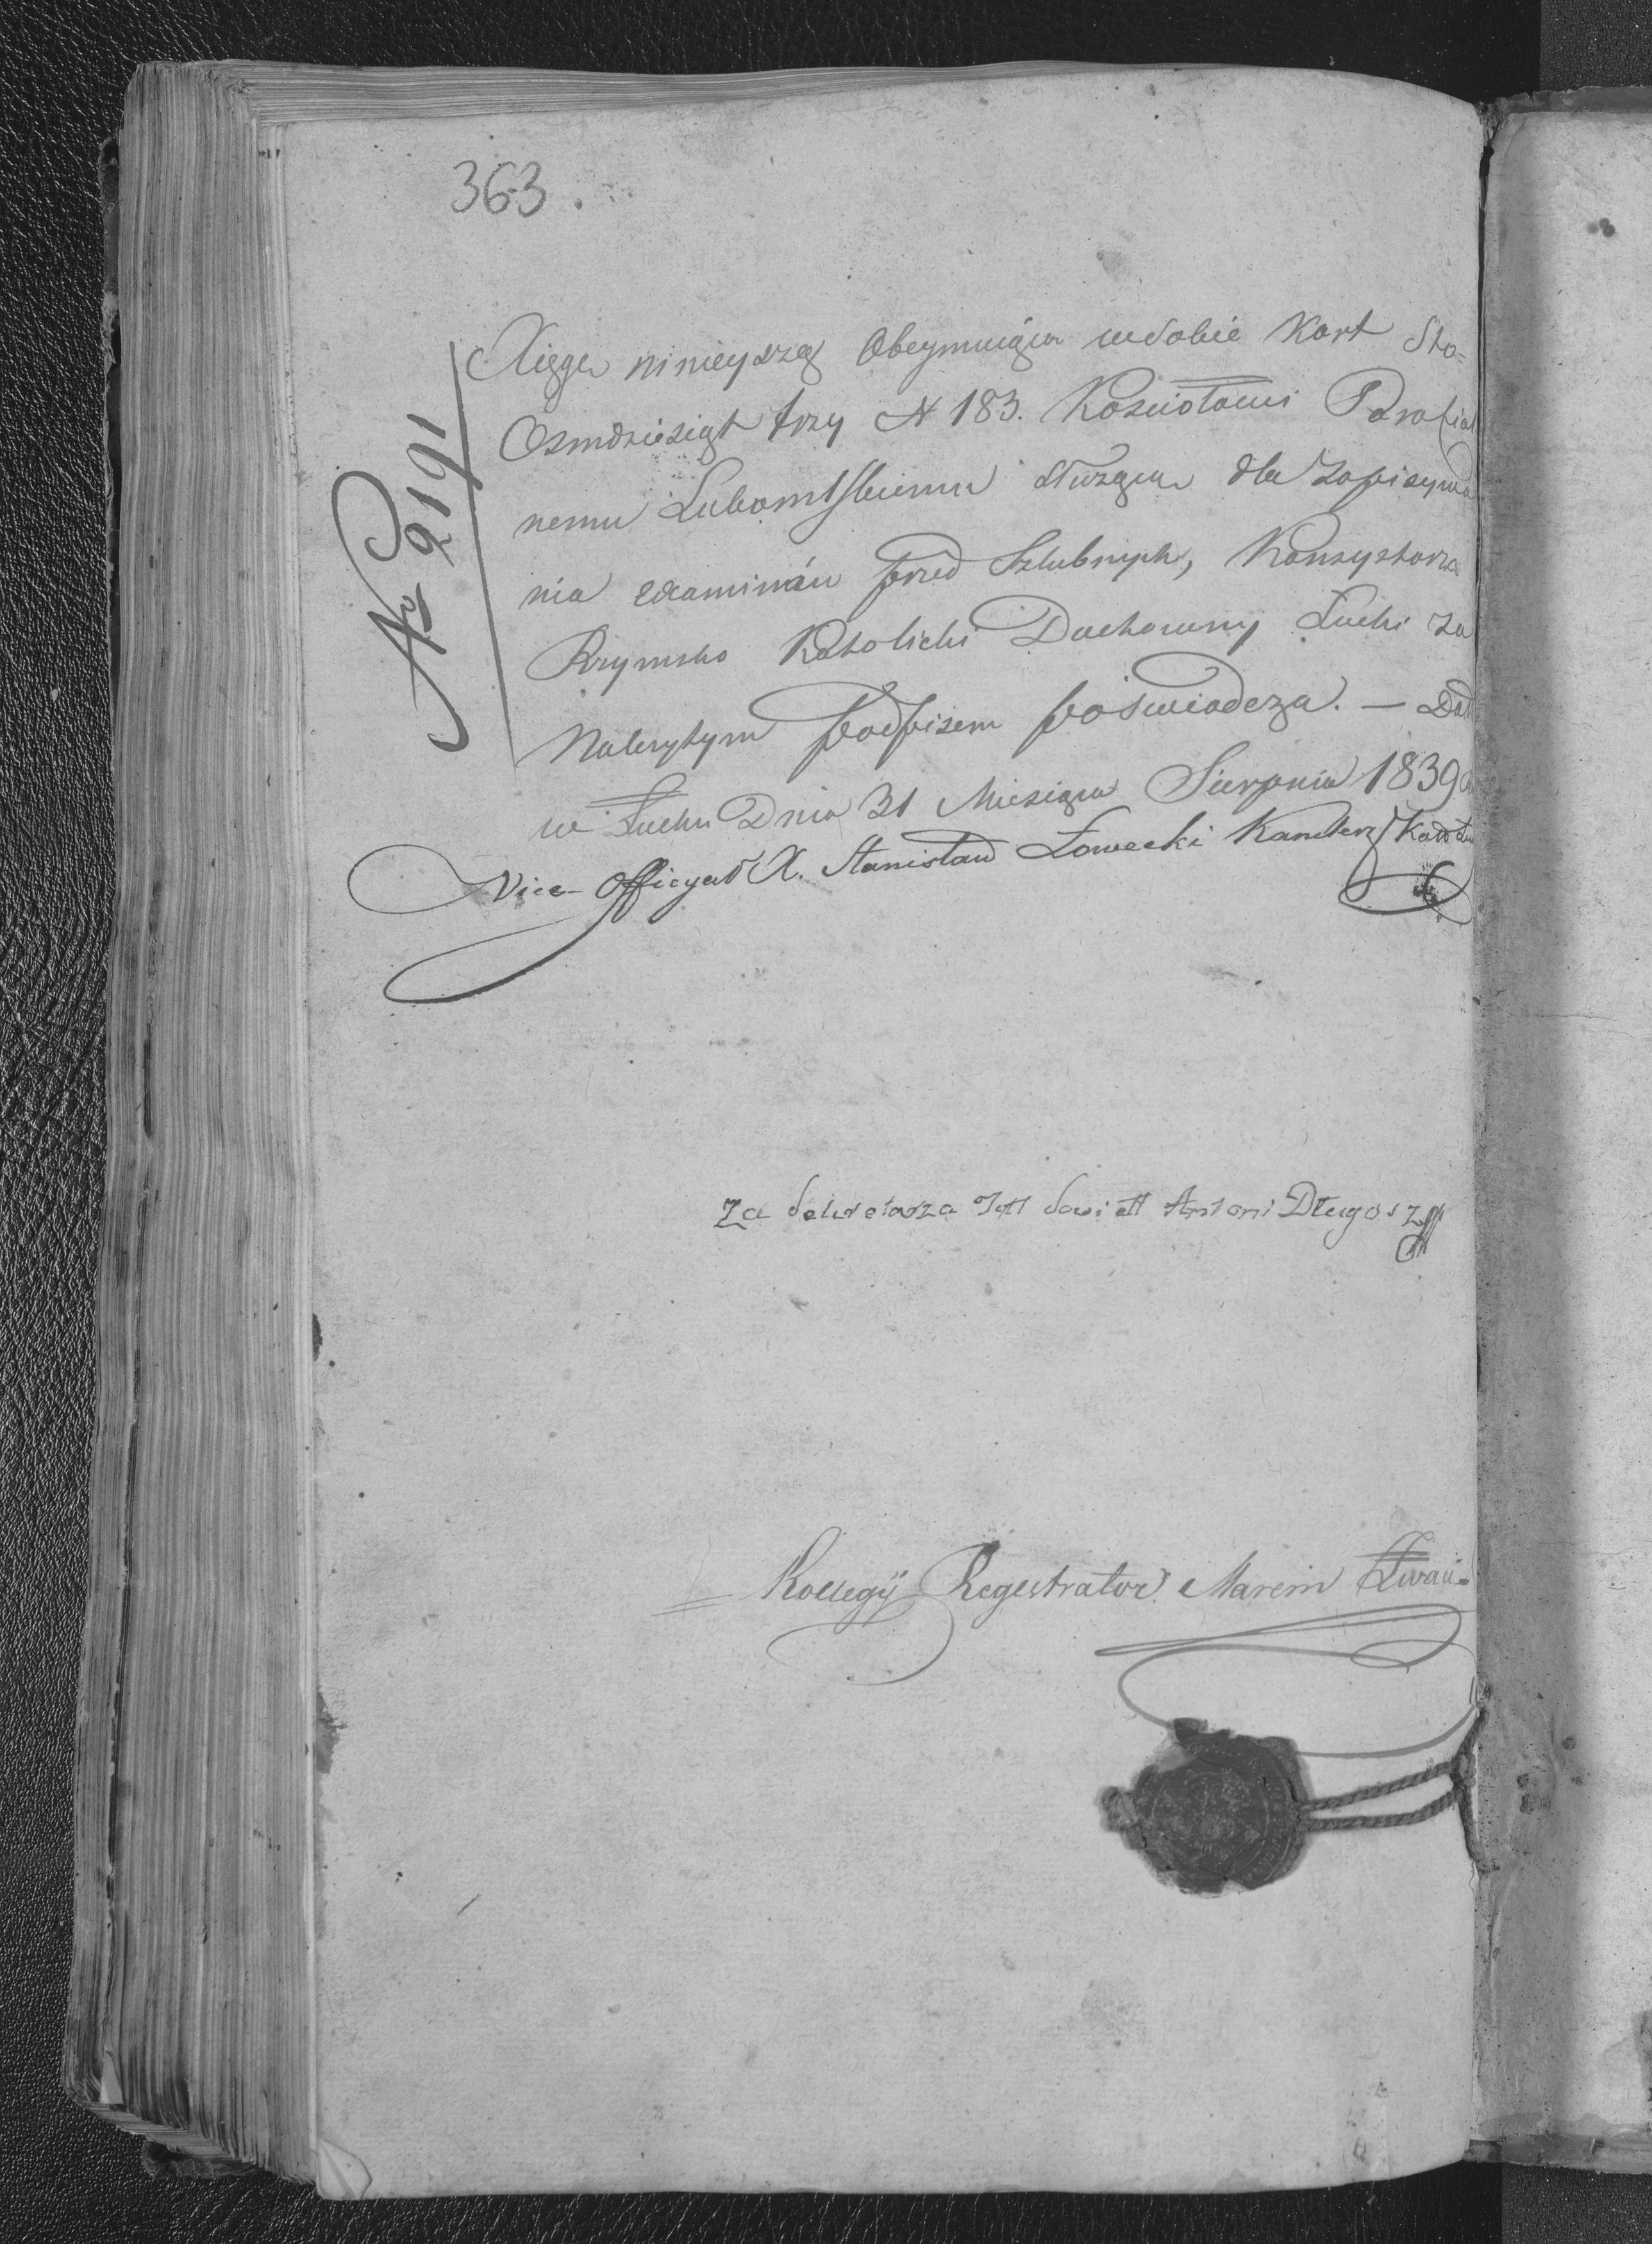 363.
№ 2191
Xięga ninieysza Obeymuiąca w sobie Kart Sto=
Osmdziesiąt trzy N 183. Kosciołowi Parafial
nemu Lubomlskiemu służąca dla zapisywa
nia examinów przed Szlubnych, Konsystorz
Rzymsko Katolicki Duchowny Łucki za
Należytym podpisem poświadcza. — Dat
w Łucku Dnia 31 Miesiąca Sierpnia 1839
Vice-Officyał X. Stanisław Łowecki Kanclerz Kate
Za Sekretarza Antoni Długosz
Kollegij Registrator Marcin